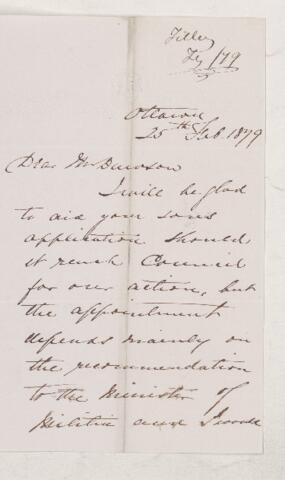 Tilley
Fy /79
Ottawa
25th Feb. 1879
Dear Mr Dawson
I will be glad
to aid your sons
application should
it reach Council
for our action, but
the appointment
depends mainly on
the recommendation
to the Minister of
Militia and I would